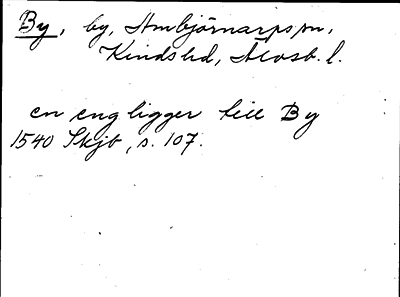 By, by, Ambjörnarps sn,
Kinds hd, Älvsb. l.
en eng ligger till By
1540 Skjb, s. 107.